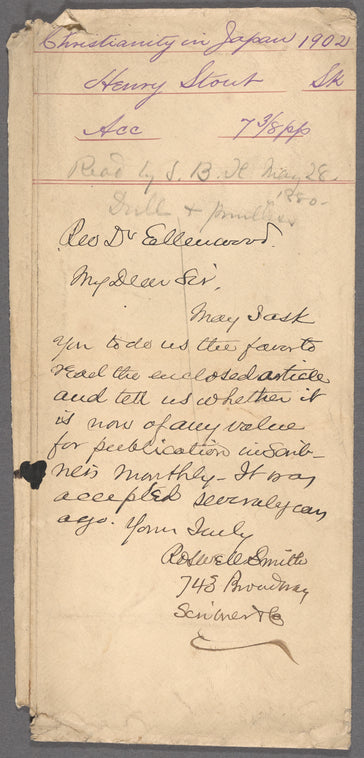 Christianity in Japan 1902
Henry Stout Sk
Acc 7 3/8 pp
Read by S. B. H May 28.
1880-
Dull + pointless
Rev Dr Ellenwood.
My Dear Sir,
May I ask
you to do us the favor to
read the enclosed article
and tell us whether it
is now of any value
for publication in Scrib-
ner's Monthly - It was
accepted several years
ago. Yours Truly
Roswell Smith
743 Broadway
Scribner & Co